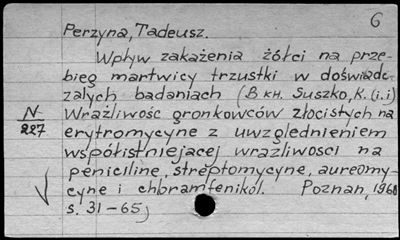 6
Perzyna, Tadeusz.
Wpływ zakażenia żółci na prze-
bieg martwicy trzustki w doświadc-
zalych badaniach (В кн. Suszko, K. (i.i)
N
227
Wrażliwość gronkowców złocistych na
erytromycyne z uwzglednieniem
współistniejacej wrazliwosci na
peniciline, streptomycyne, aureomy-
cyne i chloramfenikól. Poznan, 1960
s. 31-65)